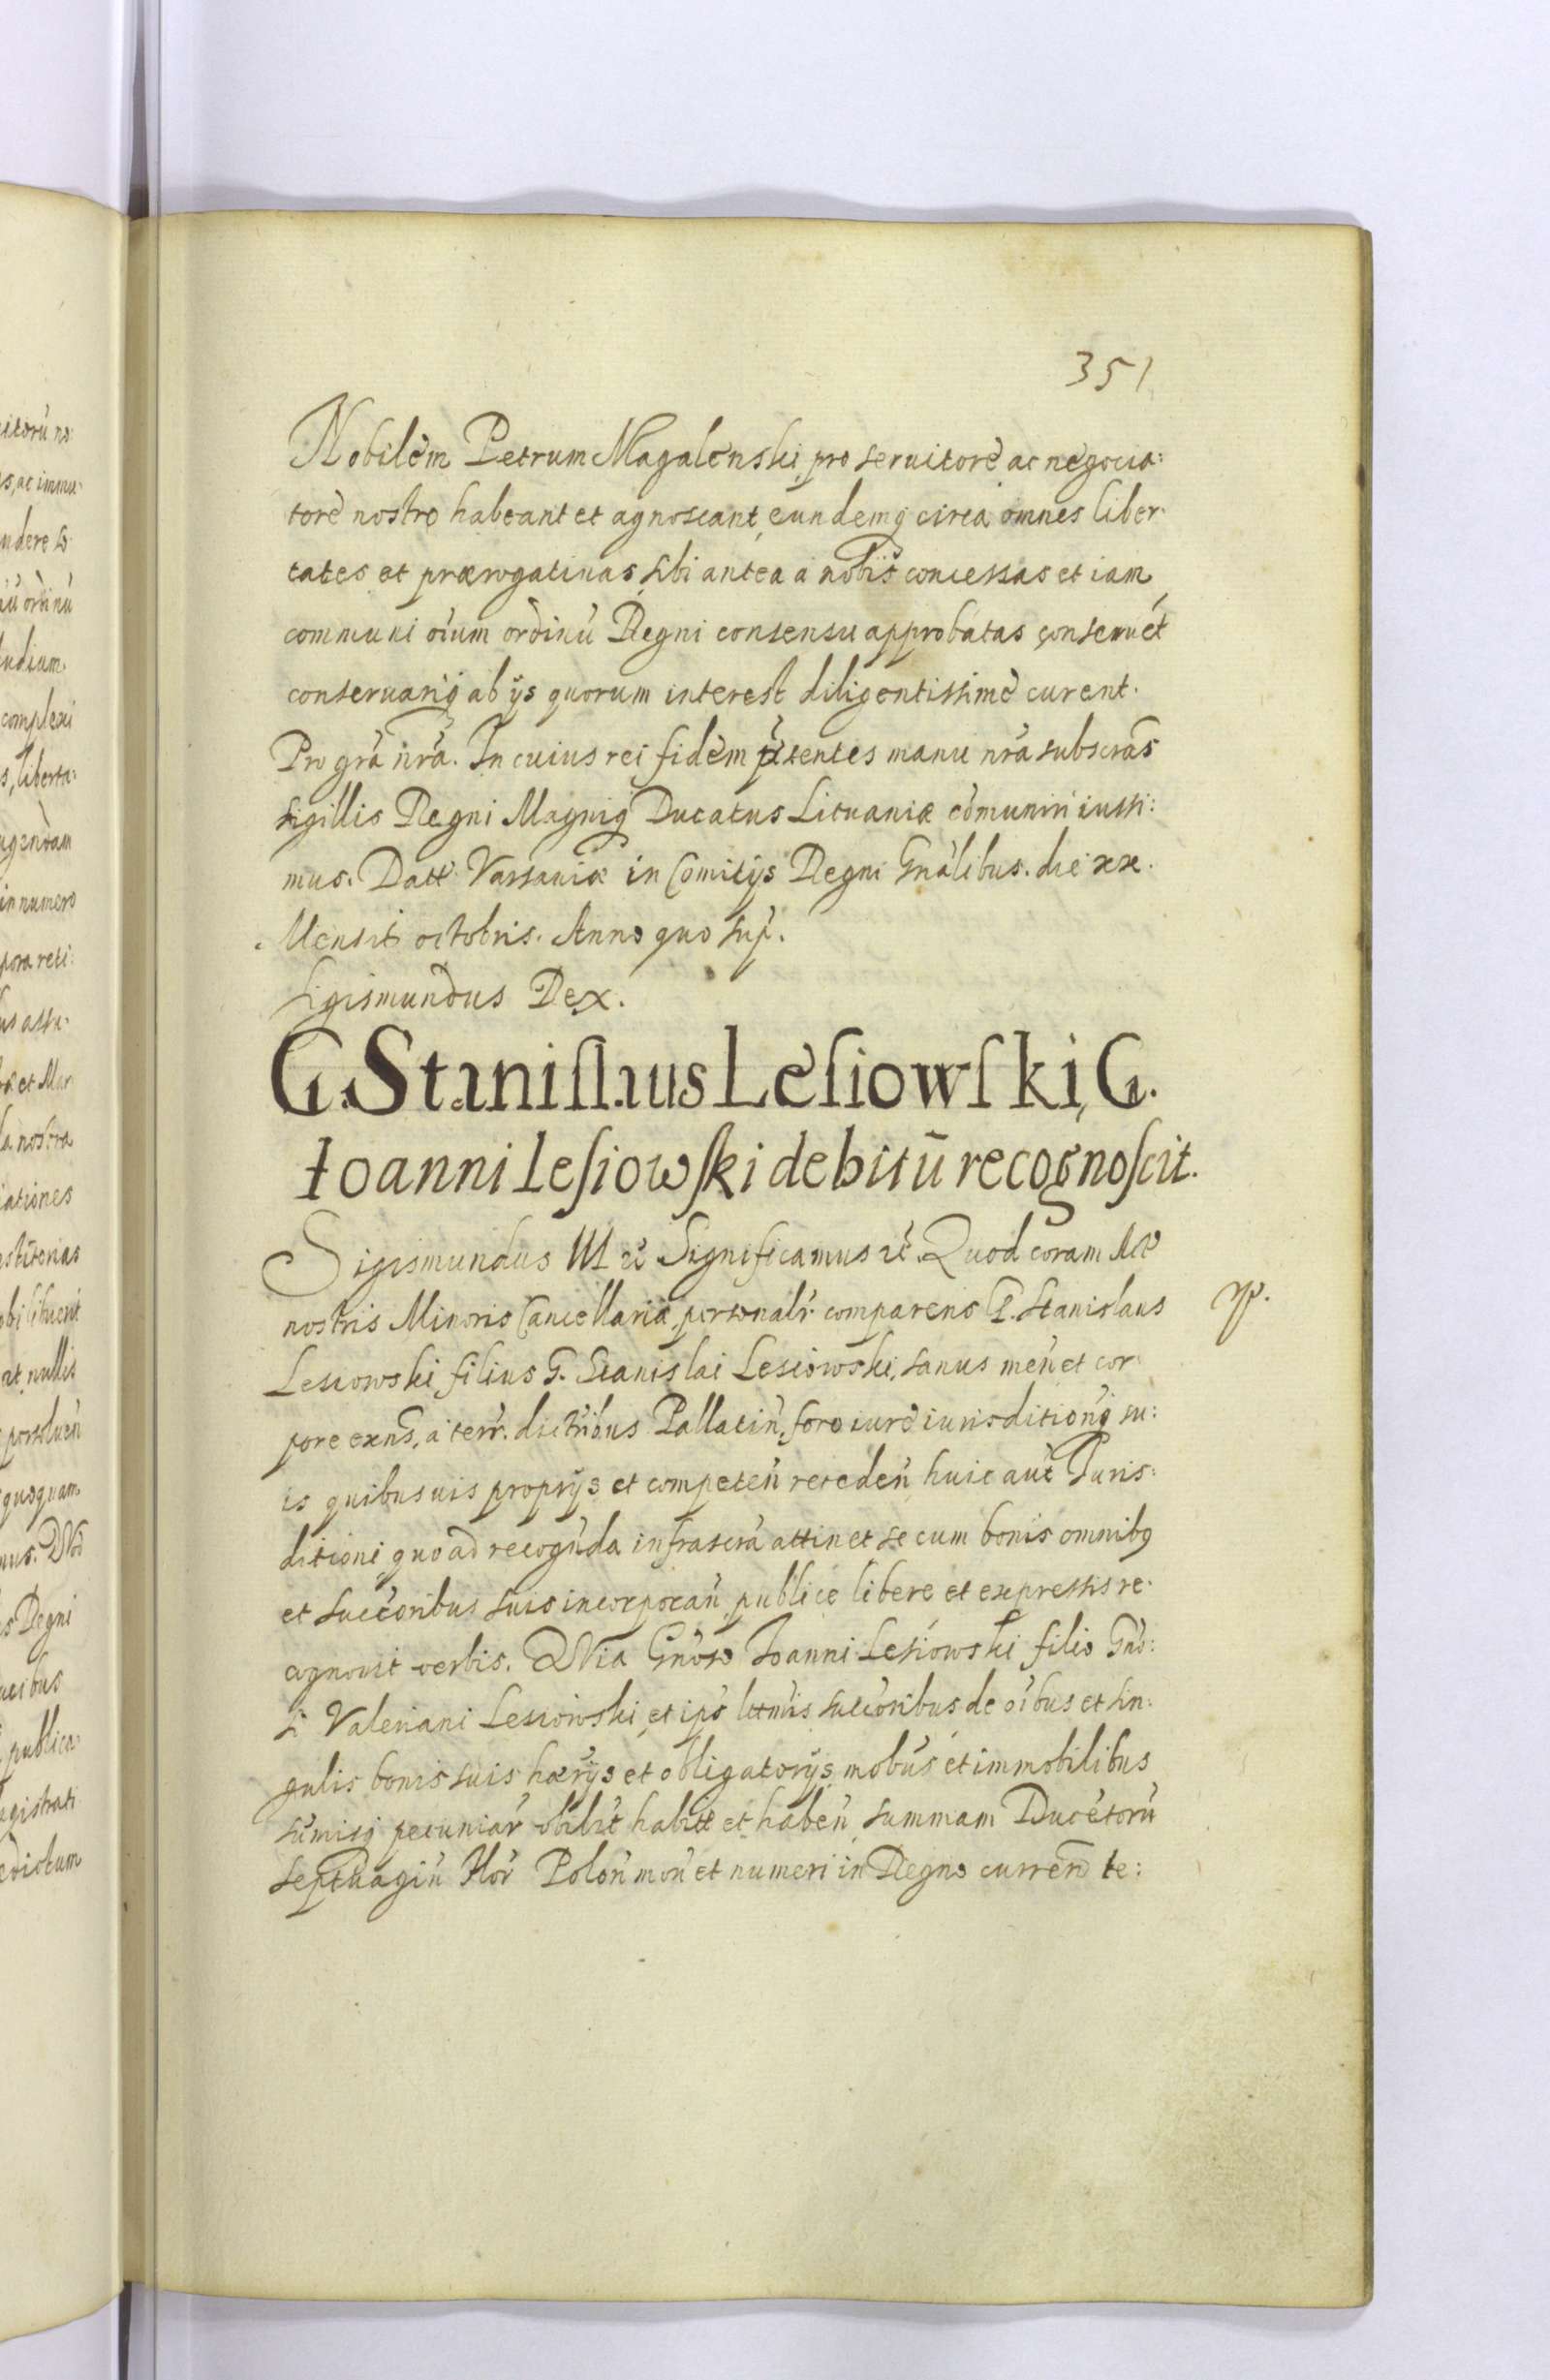 351
Nobilem Petrum Magalenski, pro seruitore ac negocia:
tore nostro habeant et agnoscant, eundemq circa omnes liber
tates et prærogatiuas, sibi antea a nobis concessas et iam,
communi oium ordinu Regni consensu approbatas conseruet
conseruariq ab ijs quorum interest diligentissime curent.
Pro gra nra. In cuius rei fidem pntentes manu nra subscras
sigillis Regni Magniq Ducatus Lituaniæ comuniri iussi:
mus. Datt Varsauiæ in Comitijs Regni Gnalibus. die xx.
Mensis octobris. Anno quo sup.
Sigismundus Rex.
G. Stanislaus Lesiowski, G.
Ioanni Lesiowski debitū recognoscit.
Sigismundus III etc Significamus etc. Quod coram Act
nostris Minoris Cancellariæ, personalr comparens G. Stanislaus
Lesiowski filius G. Stanislai Lesiowski, sanus men et cor
pore exns, a terr. districtibus Pallatin, foro iure iurisditionq su:
is quibusuis proprijs et competen receden, huic aut Iuris:
ditioni, quo ad recognda infrascra attinet se cum bonis omnibq
et succoribus suis incorporan, publice libere et expressis re
cognouit verbis. QVia Gnoso Ioanni Lesiowski filio Gno:
si Valeriani Lesiowski, et ips lttmis succoribus de oibus et sin:
gulis bonis suis hærijs et obligatorijs, mobus et immobilibus
sumisq pecuniar vbilit habitt et haben, summam Ducetoru
septuagin flor Polon mon et numeri in Regno curren te: